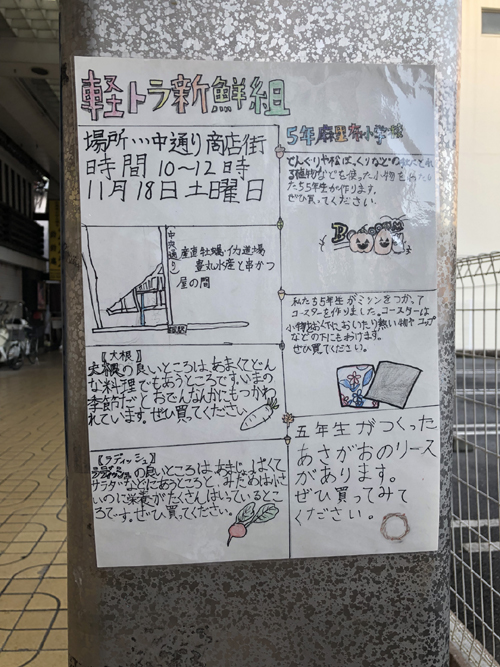 軽トラ新鮮組
場所…中通り商店街
時間10〜12時
11月18日土曜日
中央通り
産直牡蠣・イカ道場
豊丸水産と串かつ
屋の間
駅前
〖大根〗
大根の良いところは、あまくてどん
な料理でもあうところです。いまの
季節だとおでんなんかにもつかわ
れています。ぜひ買ってください
〖ラディッシュ〗
ラディッシュの良いところは、あまじょっぱくて
サラダなどにあうところと、みためは小さ
いのに栄養がたくさんはいっているとこ
ろです。ぜひ買ってください。
5年麻里布小学校
どんぐりや松ぼっくりなどの
植物などを使った小物をわたし
たち5年生が作ります。
ぜひ買ってください。
私たち5年生がミシンをつかって
コースターを作りました。コースターは
小物をおくのにおいたり熱い物やコップ
などの下にもおけます。
ぜひ買ってください。
五年生がつくった
あさがおのリース
があります。
ぜひ買ってみて
ください。